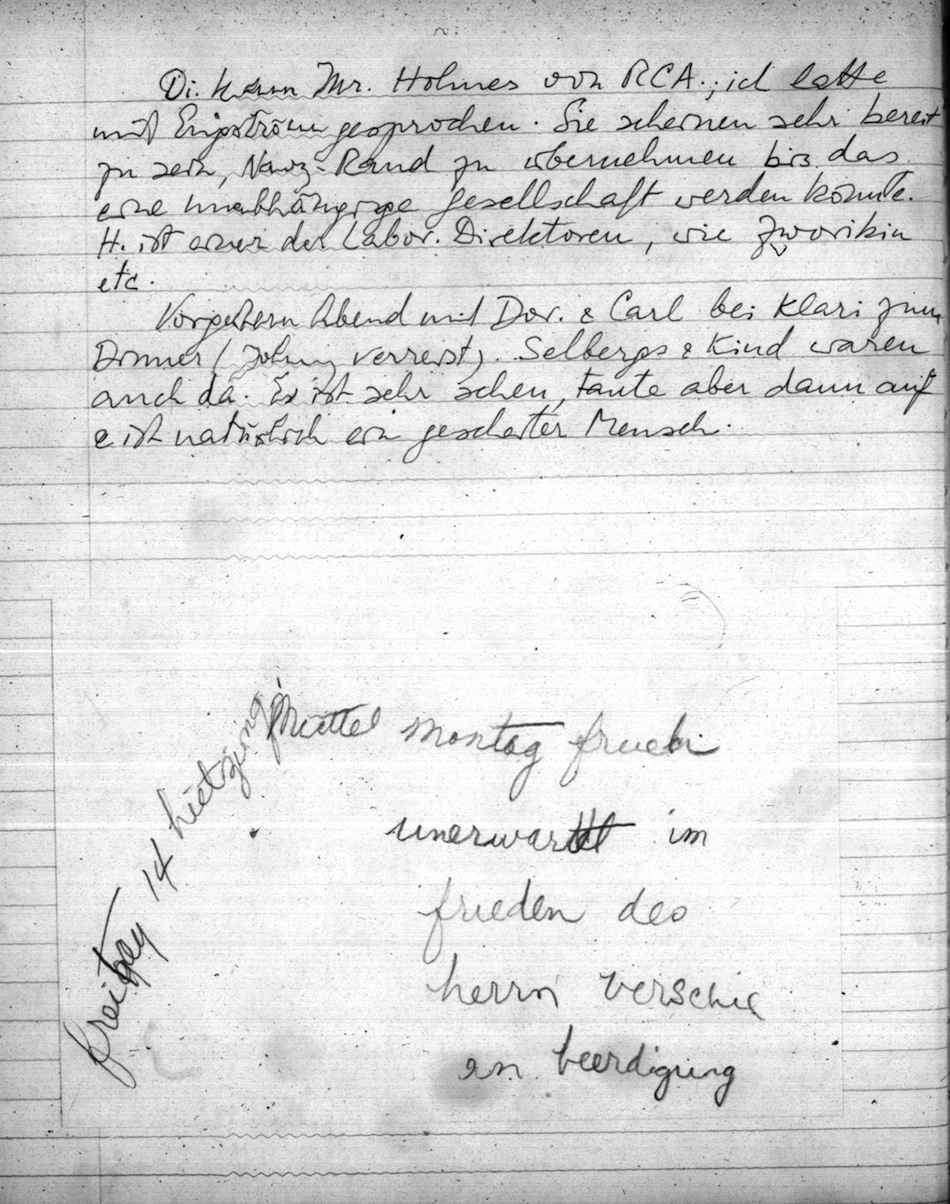 Di. kam Mr. Holmes von RCA.; ich hatte
mit Engström gesprochen. Sie scheinen sehr bereit
zu sein, Navig-Rand zu übernehmen bis das
eine unabhängige Gesellschaft werden könnte.
H. ist einer der Labor. Direktoren, wie Zworikin
etc.
Vorgestern Abend mit Dor. & Carl bei Klari zum
Dinner (Johnny verreist). Selbergs & Kind waren
auch da. Er ist sehr schen, taute aber dann auf
& ist natürlich ein gescheiter Mensch.
Muttel montag frueh
unerwartet im
frieden des
herrn verschie
en beerdigung
freitag 14 hietzing